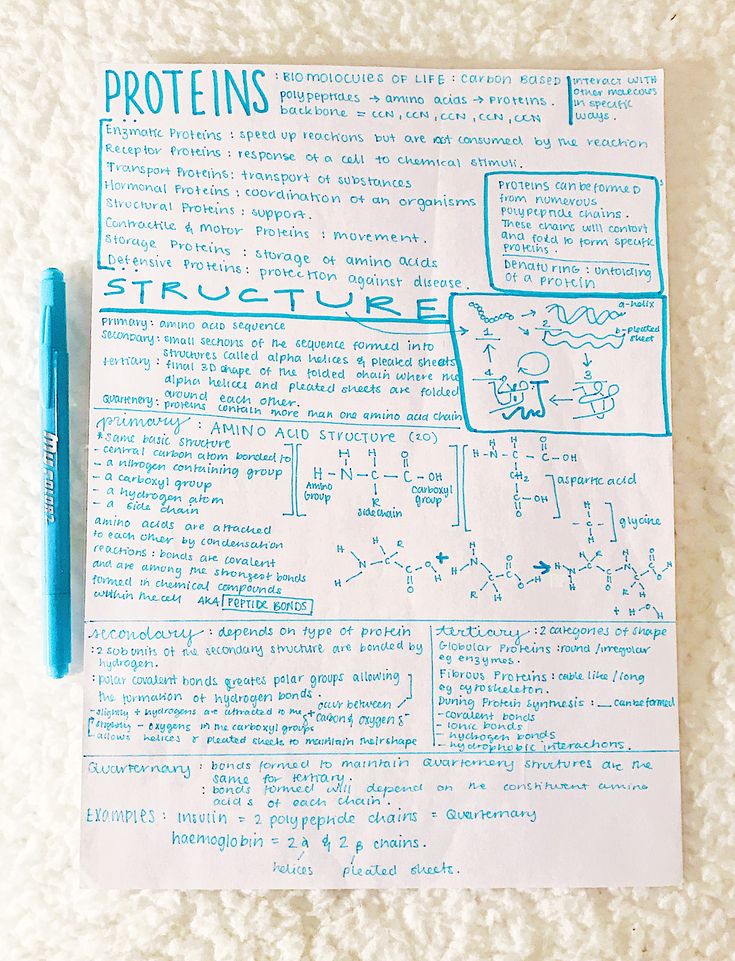 PROTEINS : BIOMOLOCULES OF LIFE : carbon BASED
polypeptides → amino acids → proteins.
backbone = CCN, CCN, CCN, CCN, CCN
interact with
other
in specific
ways.
Enzmatic Proteins : speed up reactions but are not consumed by the reaction
Receptor Proteins : response of a cell to chemical stimuli.
Transport Proteins: transport of substances
Hormonal Proteins : coordination of an organisms
Structural Proteins : support.
Contractile & Motor Proteins : movement.
Storage Proteins : storage of amino acids
Defensive Proteins : protection against disease.
Proteins can be formed
from numerous
polypeptide chains.
These chains will contort
and fold to form specific
proteins.
Denaturing : unfolding
of a protein
STRUCTURE
primary: amino acid sequence
secondary: small sections of the sequence formed into
structures called alpha helices & pleated sheets
tertiary: final 3D shape of the folded chain where the
alpha helices and pleated sheets are folded
around each other.
Quarternery: proteins contain more than one amino acid chain
1
2
a-helix
b-pleated
sheet
3
4
primary : AMINO ACID STRUCTURE (20)
* same basic structure
- central carbon atom bonded to
- a nitrogen containing group
- a carboxyl group
- a hydrogen atom
- a side chain
amino acids are attached
to each other by condensation
reactions : bonds are covalent
and are among the strongest bonds
formed in chemical compounds
within the cell AKA PEPTIDE BONDS
H H O
H - N - C - C - OH
Amino
Group
R
side chain
Carboxyl
group
H H O
H - N - C - C - OH
CH2
C - OH
O
aspartic acid
H
- C -
H
glycine
+ H O H
secondary : depends on type of protein
: 2 subunits of the secondary structure are bonded by
hydrogen.
: polar covalent bonds creates polar groups allowing
the formation of hydrogen bonds.
- slightly + hydrogens are attracted to the
slightly - oxygens in the carboxyl groups
occur between
δ+ Carbon & oxygen δ-
- allows helices & pleated sheets to maintain their shape
tertiary : 2 categories of shape
Globular Proteins : round / irregular
eg enzymes.
Fibrous Proteins : cable like / long
eg cytoskeleton.
During Protein Synthesis : ___ can be formed
- covalent bonds
- ionic bonds
- hydrogen bonds
- hydrophobic interactions.
Quarternary : bonds formed to maintain Quarternery structures are the
same for tertiary.
: bonds formed will depend on the constituent amino
acids of each chain.
Examples : insulin = 2 polypeptide chains = Quarternary
haemoglobin = 2 α & 2 β chains.
helices pleated sheets.